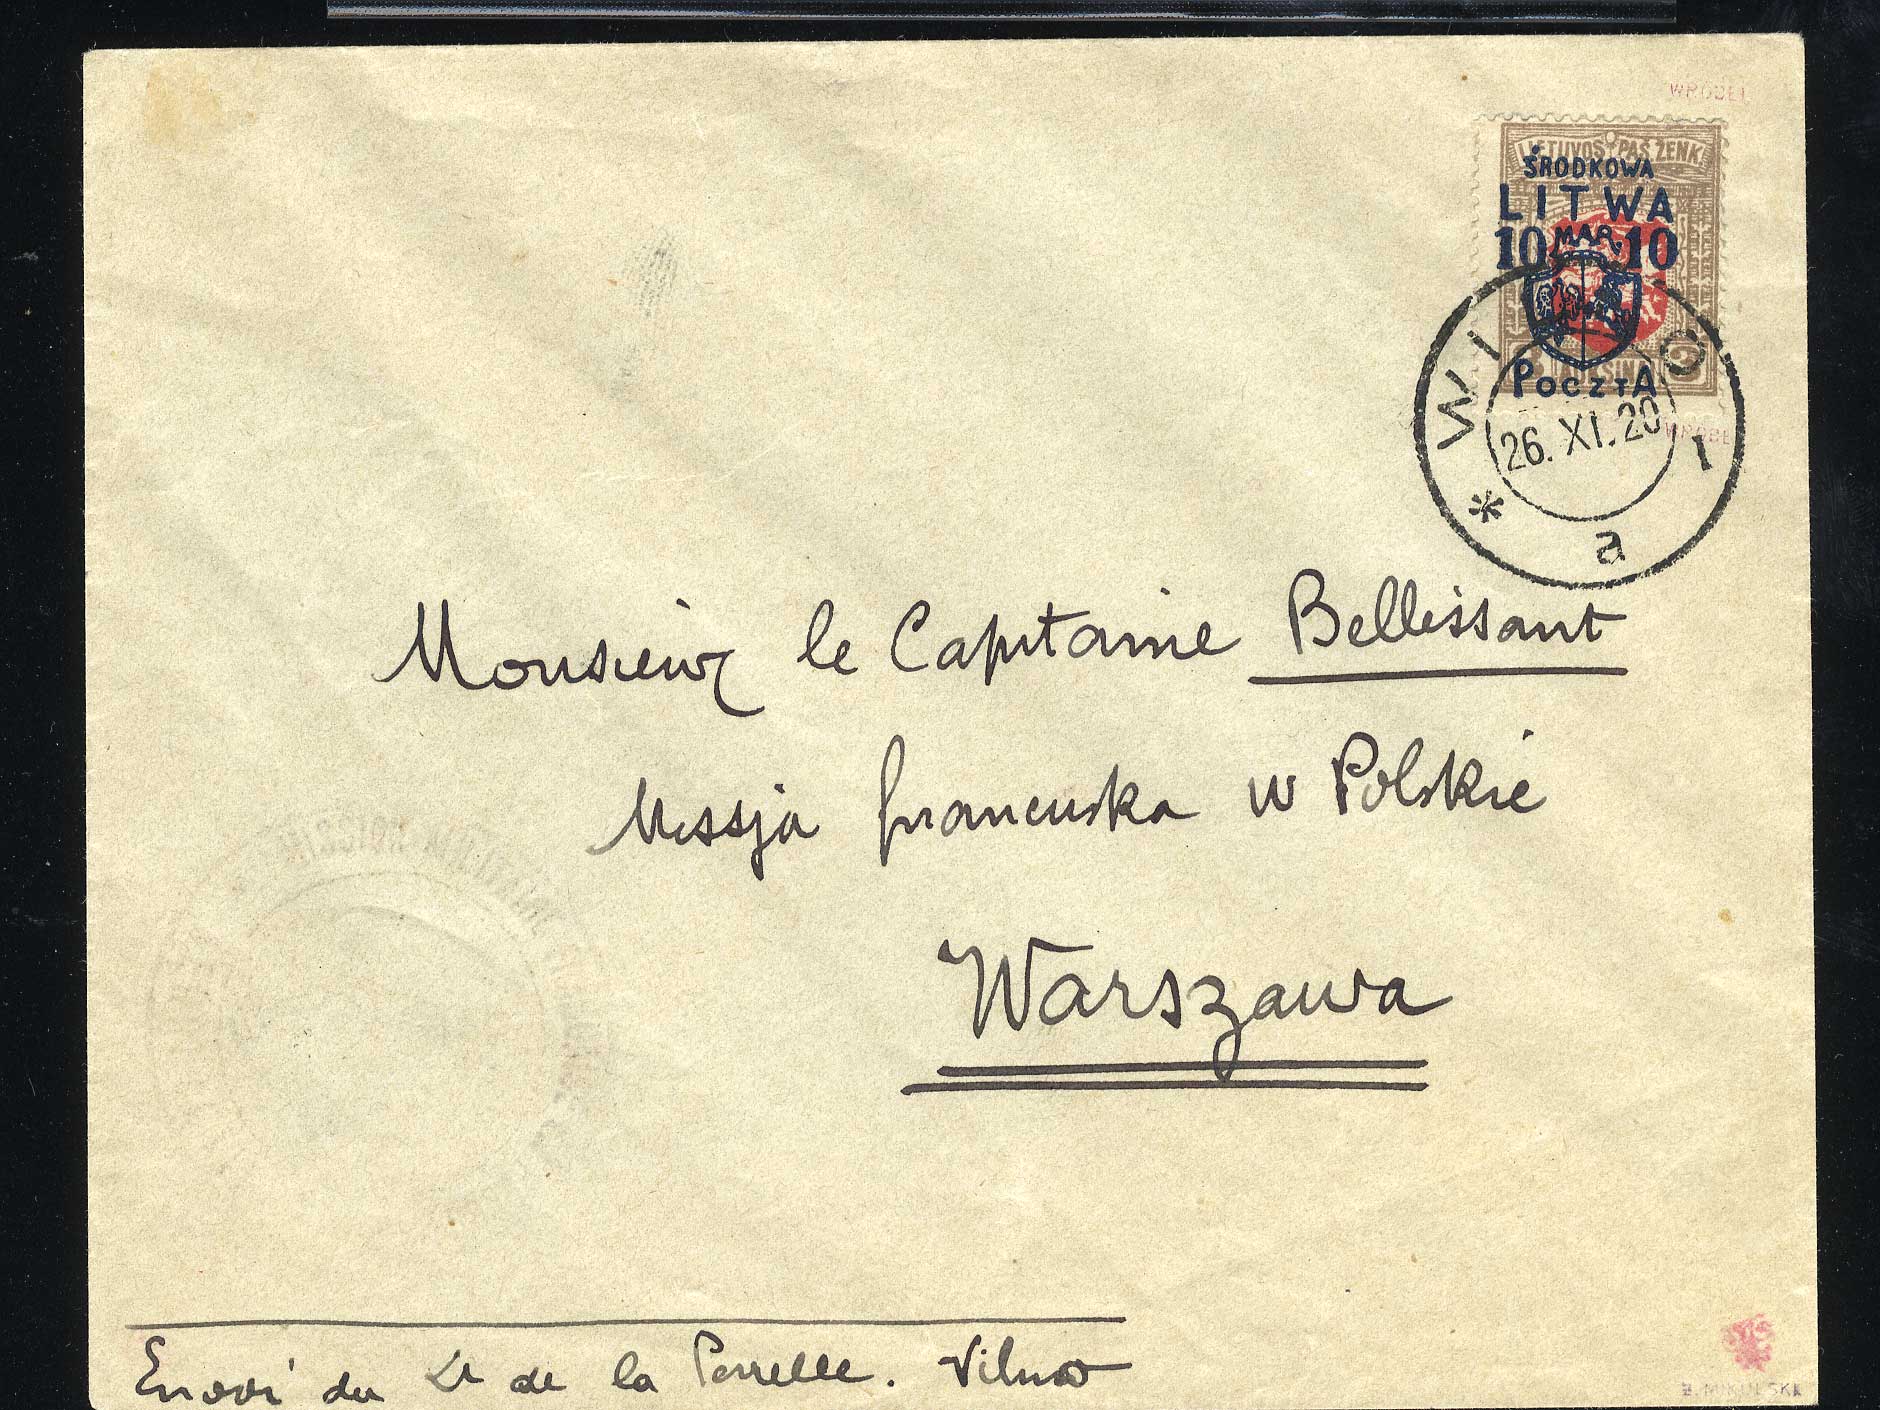 WRÓBEL
LIETUVOS PAŠ.ŽENK.
ŚRODKOWA
LITWA
10 MAR. 10
3 AUKSINAI 3
POCZTA
WI O 1
26. XI. 20
WRÓBEL
* a
Monsieur le Capitaine Bellissant
Missja francuska w Polskie
Warszawa
Envoi du Lt de la Perrelle. Vilno
B. MIKULSKI